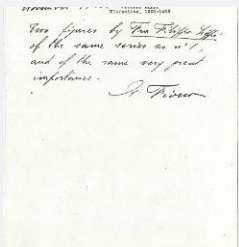 Florentine, 1406-1469
Two figures by Fra Filippo Lippi
of the same series as n° 1,
and of the same very great
importance.